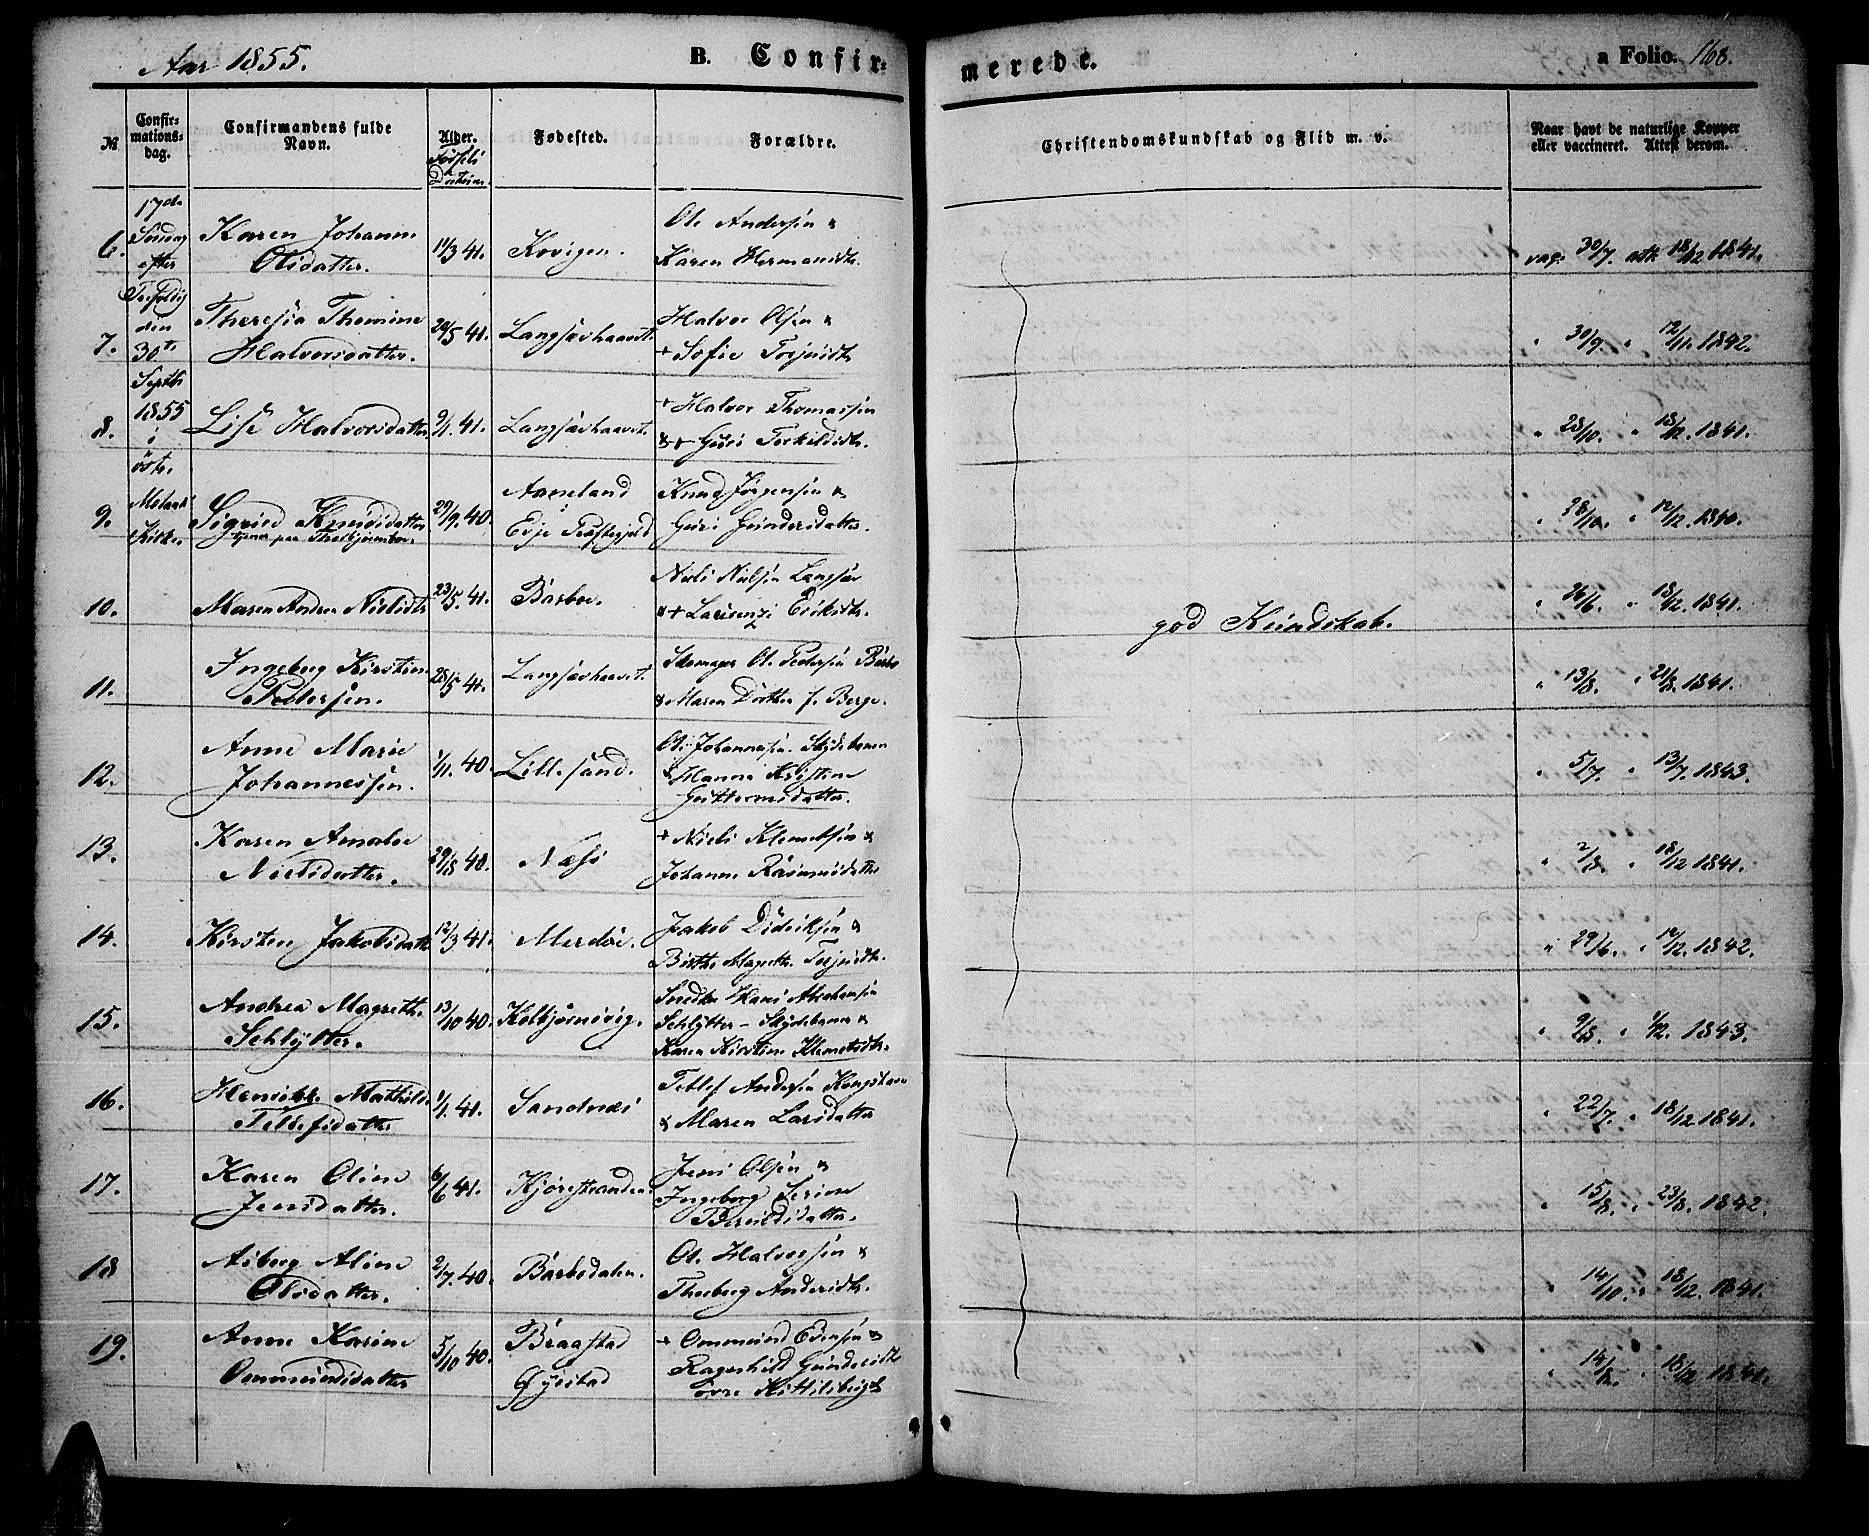 Aar 1855.
B. Confir-
merede.
a Folio. 168.
№
Confir-
mations-
dag.
Confirmandens fulde
Navn.
Alder.
Fødested.
Forældre.
Christendomskundskab og Flid m. v.
Naar havt de naturlige Kopper
eller vaccineret. Attest derom.
17de
Søndag
efter
Trefoldig
den
30te
Septbr
1855
i
östr.
Moland
Kirke.
6. Karen Johanne
Olsdatter.
11/3 41.
Kovigen.
Ole Andersen &
Karen Hermansdtr.
vac. 30/7. att. 18/12 1841.
7. Theresia Thomine
Halvorsdatter.
29/5 41.
Langsævhaavet.
Halvor Olsen &
+ Sofie Terjesdtr.
" 30/9. " 12/11. 1842.
8. Lise Halvorsdatter.
9/1. 41.
Langsævhaavet.
+ Halvor Thomassen
& + Guri Terkildsdtr.
" 28/10. " 18/12. 1841.
9. Sigried Knudsdatter
29/9. 40.
Aaneland
i
Evje Præstegjeld
Knud Jørgensen &
Guri Gundersdatter.
" 28/10. " 17/12. 1840.
10. Maren Andrea Nielsdtr
23/5. 41.
Barboe.
Niels Nielsen Langsæv
& + Laurenze Eriksdtr.
" 26/6. " 18/12. 1841.
god Kundskab.
11. Ingeborg Kirstine
Pedersen.
28/5 41.
Langsævhaavet.
Skomager Ol. Pedersen Barbo
& Maren Dorthea f. Berge.
" 13/8. " 21/8. 1841.
12. Anne Marie
Johannessen.
1/11. 40.
Lillesand.
Ole Johannesen. Skydebanen
& Hanne Kristine
Guttormsdatter.
" 5/7. " 13/7. 1843.
13. Karen Amalie
Nielsdatter.
29/8 40.
Næss
+ Niels Klemetsen &
Johanne Rasmusdatter
" 2/8. " 18/12 1841.
14. Kirsten Jakobsdatt
12/3 41.
Merdøe.
Jakob Didriksen &
Birthe Magrethe Terjesdtr.
" 29/6. " 17/12. 1842.
15. Andrea Magrethe
Schlytter.
13/10 40.
Kolbjørnsvig.
Hans Abrahamsen
Schlytter - Skydebanen &
Karen Kirstine Klemetsdtr.
" 9/8. " 1/12. 1843.
16. Henrikke Mathilde
Tellefsdatter
1/1. 41.
Sandnæs
Tellef Andersen Kongshavn
& Maren Larsdatter
" 22/7. " 18/12 1841.
17. Karen Oline
Jensdatter.
6/6 41.
Kjørestranden.
Jens Olsen &
Ingeborg Serine
Beruldsdatter.
" 15/8. " 23/8. 1842.
18 Asberg Aline
Olsdatter.
2/7. 40.
Barbodalen.
Ol. Halvorsen &
Thorberg Andersdtr.
" 14/10. " 18/12. 1841.
19. Anne Karine
Ommundsdatter
5/10 40.
Braastad
Øyestad
+ Ommund Evensen &
Ragnhild Gundersdtr
øvre Kittilsbugt
" 14/8. " 18/12 1841.